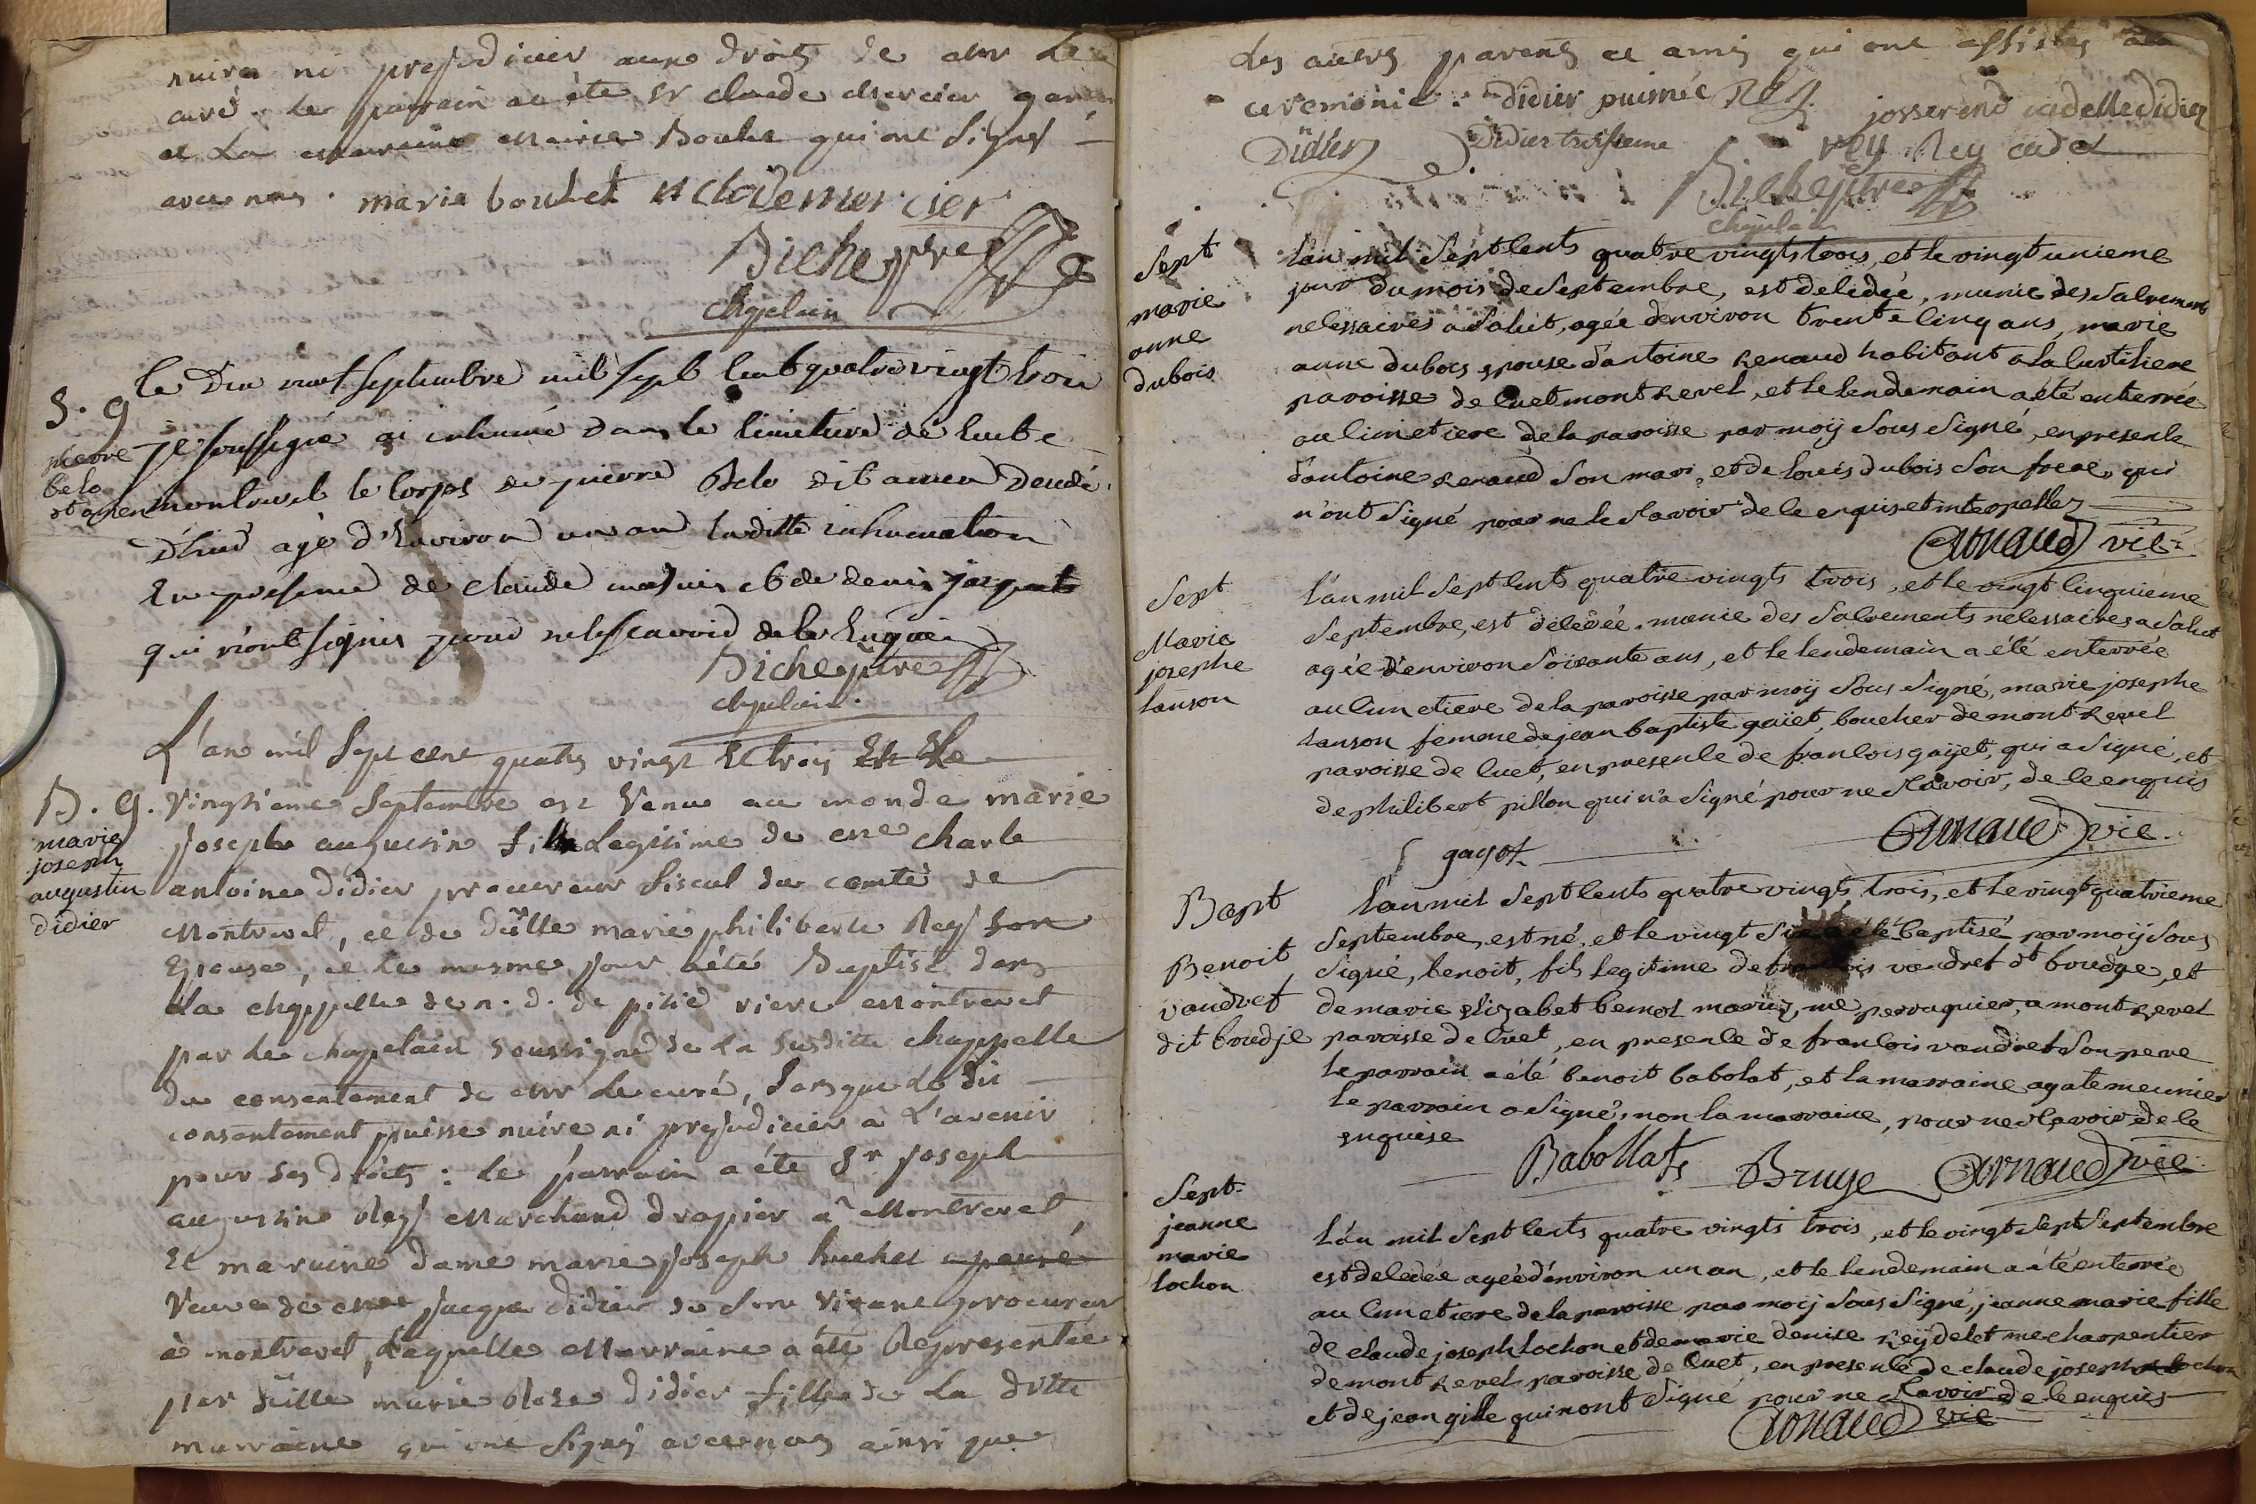 nuire ni prejudicier aux droits de mr le
curé. le parrain a été sr claude mercier
et la marraine marie Boulet qui ont signé
avec nous. marie boulet claude mercier
Bichet ptre
chapelain
S. 9
pierre
belo
dt amen
le dix neuf septembre mil sept cent quatre vingt trois
je soussigné ai inhumé dans le cimetiere de cuet e
montrevel le corps de pierre Belo dit amen décédé
d'hier agé d'environ un an laditte inhumation
en présence de claude et de denis
qui n'ont signés pour ne le scavoir de ce enquis
Bichet ptre
chapelain.
L'an mil sept cent quatre vingt et trois et le
B. 9.
marie
joseph
augustin
didier
vingtieme septembre est venu au monde marie
joseph augustin fils legitime de me charle
antoine didier procureur fiscal du comté de
Montrevel, et de dlle marie philiberte Rey son
epouse, et le mesme jour a été Baptisé dans
la chappelle de n. d. de pitié riere Montrevel
par le chapelain soussigné de la susditte chappelle
du consentement de mr le curé, sans que le dit
consentement puisse nuire ni prejudicier a l'avenir
pour ses droits : le parrain a été Sr joseph
augustin Rey Marchand drapier à Montrevel,
Et maraine dame marie joseph
veuve de me jacque didier de son vivant procureur
à montrevel, laquelle Marraine a été Representée
par dlle marie Rose didier fille de la ditte
marraine qui ont signés avec nous ainsi que
les autres parens et amis qui ont assistés à la
ceremonie. didier puisnée Rey. josserand cadette didier
Didier Didier troisieme rey Rey cadet
Bichet ptre
chapelain
Sept
marie
anne
dubois
l'an mil sept cents quatre vingts trois, et le vingt unieme
jour du mois de Septembre, est decedée, munie des sacrements
necessaires a salut, agée d'environ trente cinq ans, marie
anne dubois epouse d'antoine Renaud habitant a la curtiliere
paroisse de Cuet montrevel, et le lendemain a été enterrée
au cimetiere de la paroisse par moy sous signé, en presence
d'antoine Renaud son mari, et de louis dubois son frere, qui
n'ont signé pour ne le scavoir de ce enquis et interpellez
Arnaud vic.
Sept
Marie
josephe
lanson
l'an mil sept cents quatre vingts trois, et le vingt cinquieme
Septembre, est décédée, munie des sacrements necessaires a salut
agée d'environ soixante ans, et le lendemain a été enterrée
au cimetiere de la paroisse par moy sous signé, marie josephe
lanson femme de jean baptiste gaiet, boucher de montrevel
paroisse de Cuet, en presence de francois gayet, qui a signé, et
de philibert pillon qui n'a signé pour ne scavoir, de ce enquis
gayet
Arnaud vic.
Bapt
Benoit
vaudret
dit boudje
l'an mil sept cents quatre vingts trois, et le vingt quatrieme
Septembre, est né, et le vingt baptisé par moy sous
signé, benoit, fils legitime de vaudret dt boudge, et
de marie elizabet bemol mariez, me perruquier, a montrevel
paroisse de Cuet, en presence de francois vaudret son pere
le parrain a été benoit babolat, et la marraine agate meunier
le parrain a signé, non la marraine, pour ne scavoir de ce
enquise
Babollat Bruye Arnaud vic.
Sept.
jeanne
marie
lochon
l'an mil sept cents quatre vingts trois, et le vingt sept Septembre
est decedée agée d'environ un an, et le lendemain a été enterrée
au cimetiere de la paroisse par moy sous signé, jeanne marie fille
de claude joseph lochon et de marie denise Reydelet me charpentier
de montrevel paroisse de Cuet, en presence de claude joseph lochon
et de jean gille qui n'ont signé pour ne scavoir de ce enquis
Arnaud vic